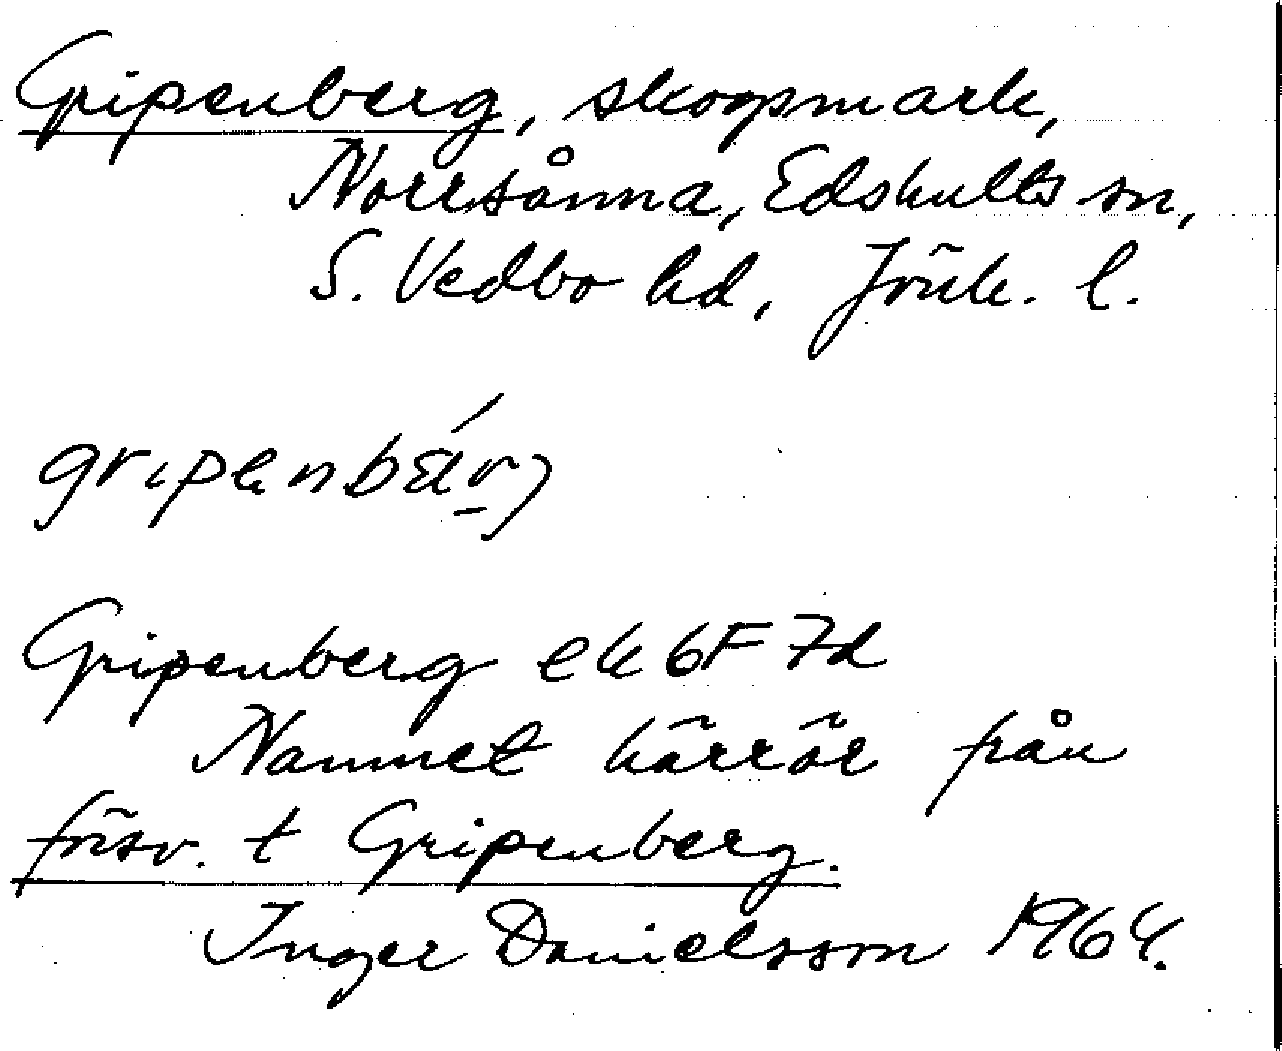 Gripenberg, skogsmark,
Norrsånna, Edshults sn,
S. Vedbo hd, Jönk. l.
gripenbǽrj
Gripenberg ek 6F 7d
Namnet härrör från
försv. t Gripenberg.
Inger Danielsson 1964.